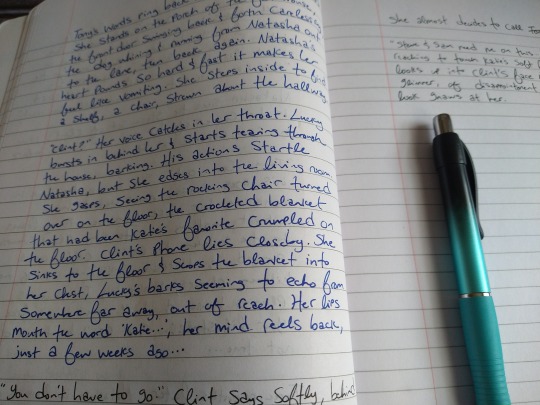 Tony's words ring back
She stands on the porch of the
the front door swinging back & forth
the dog whining & running from Natasha out
to the lane, then back again. Natasha's
heart pounds so hard & fast it makes her
feel like vomiting. She steps inside to find
a chair, strewn about the hallway.
"Clint?" Her voice catches in her throat. Lucky
bursts in behind her & starts tearing through
the house, barking. His actions startle
Natasha, but she edges into the living room.
She gasps, seeing the rocking chair turned
over on the floor, the crocheted blanket
that had been Kate's favorite crumpled on
the floor. Clint's phone lies closeby. She
sinks to the floor & scoops the blanket into
her chest, Lucky's barks seeming to echo from
somewhere far away, out of reach. Her lips
mouth the word 'Kate...', her mind reels back,
just a few weeks ago...
"You don't have to go" Clint says softly, behind
She almost decides to call
reaching to touch Kate's
looks up into Clint's face
of disappointment
look gnaws at her.